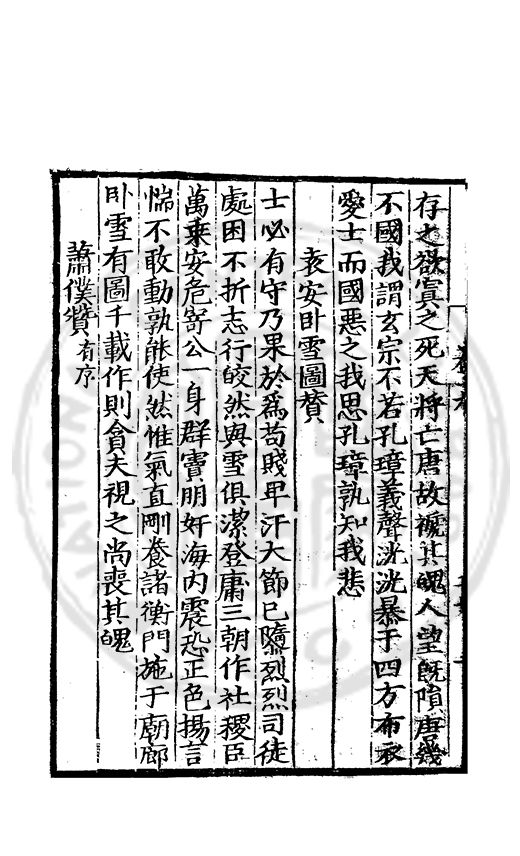 存之欲寘之死天將亡唐故褫其魄人望旣隕唐幾
不國我謂玄宗不若孔璋義聲洸洸暴于四方布衣
愛士而國惡之我思孔璋孰知我悲
袁安卧雪圖贊
士必有守乃果於爲苟賤早汙大節已隳烈烈司徒
處困不折志行皎然與雪俱潔登庸三朝作社稷臣
萬乘安危寄公一身群竇朋奸海內震恐正色揚言
惴不敢動孰能使然惟氣直剛養諸衡門施于廟廊
卧雪有圖千載作則貪夫視之尚喪其魄
蕭僕贊有序